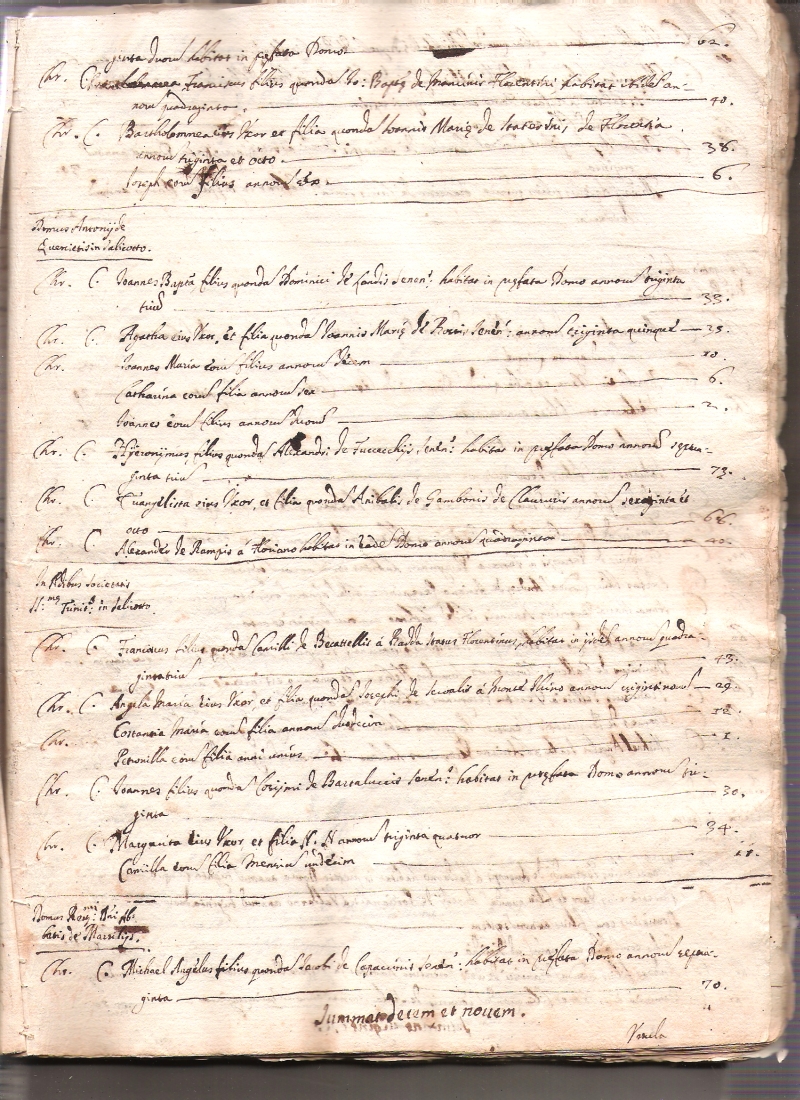 ginta duorum habitat in prefata Domo 62.
Chr. C. Franciscus filius quondam Jo: Bapte de Mancinis Florentini habitat ibidem an-
norum quadraginta. 40.
Chr. C. Bartholommea eius Uxor et filia quondam Joannis Marie de Florentia
annorum triginta et octo 38.
Joseph eorum filius annorum sex 6.
Domus Antonij de
Quercetis in Salicotto.
Chr. C. Joannes Bapta filius quondam Dominici de Landis Senen: habitat in prefata Domo annorum triginta
trium 33.
Chr. C. Agatha eius Uxor, et filia quondam Joannis Marie de Senen: annorum triginta quinque 35.
Chr. Joannes Maria eorum filius annorum decem 10.
Catharina eorum filia annorum sex 6.
Joannes eorum filius annorum duorum 2.
Chr. C. Hieronymus filius quondam Alexandri de Senen: habitat in prefata Domo annorum septua-
ginta trium 73.
Chr. C. Evangelista eius Uxor, et filia quondam Anibalis de Gambonis de annorum sexaginta et
octo 68.
Chr. C. Alexander de Rampis à habitat in eade Domo annorum quadraginta 40.
In Ædibus Societatis
SS.me Trinit: in Salicotto.
Chr. C. Franciscus filius quondam Camilli de Becattellis à Radda Status Florentinus, habitat in annorum quadra-
gintatrium 43.
Chr. C. Angela Maria eius Uxor et filia quondam Josephi de à Monte annorum vigintinovem 29.
Chr. Costantia Maria eorum filia annorum duodecim 12.
Petronilla eorum filia anni unius 1.
Chr. C. Joannes filius quondam de Bartaluccis Senen: habitat in prefata Domo annorum tri-
ginta 30.
Chr. C. Margarita eius Uxor et filia N. N. annorum triginta quatuor 34.
Camilla eorum filia Mensium undecim 11.
Domus Dni Ab-
batis de Marsilijs.
Chr. C. Michael Angelus filius quondam Jacobi de Senen: habitat in prefata Domo annorum septua-
ginta 70.
Summat decem et novem.